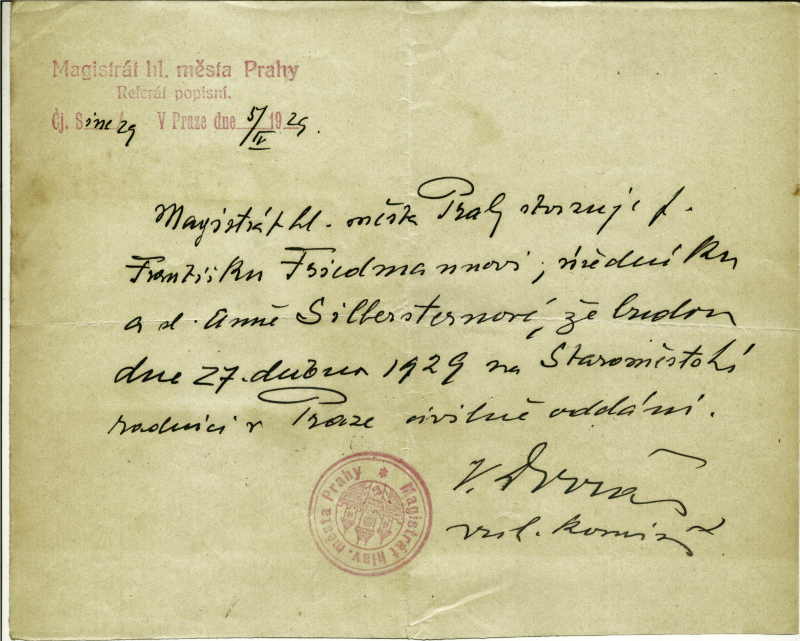 Magistrát hl. města Prahy
Referát popisní.
Čj. S ine 29 V Praze dne 5/IV 1929.
Magistrát hl. města Prahy stvrzuje p.
Františku Friedmannovi, úředníku
a sl. Anně Silbersternové, že budou
dne 27. dubna 1929 na Staroměstské
radnici v Praze civilně oddáni.
V. Dvořák
komisař
Magistrát hlav. města Prahy *